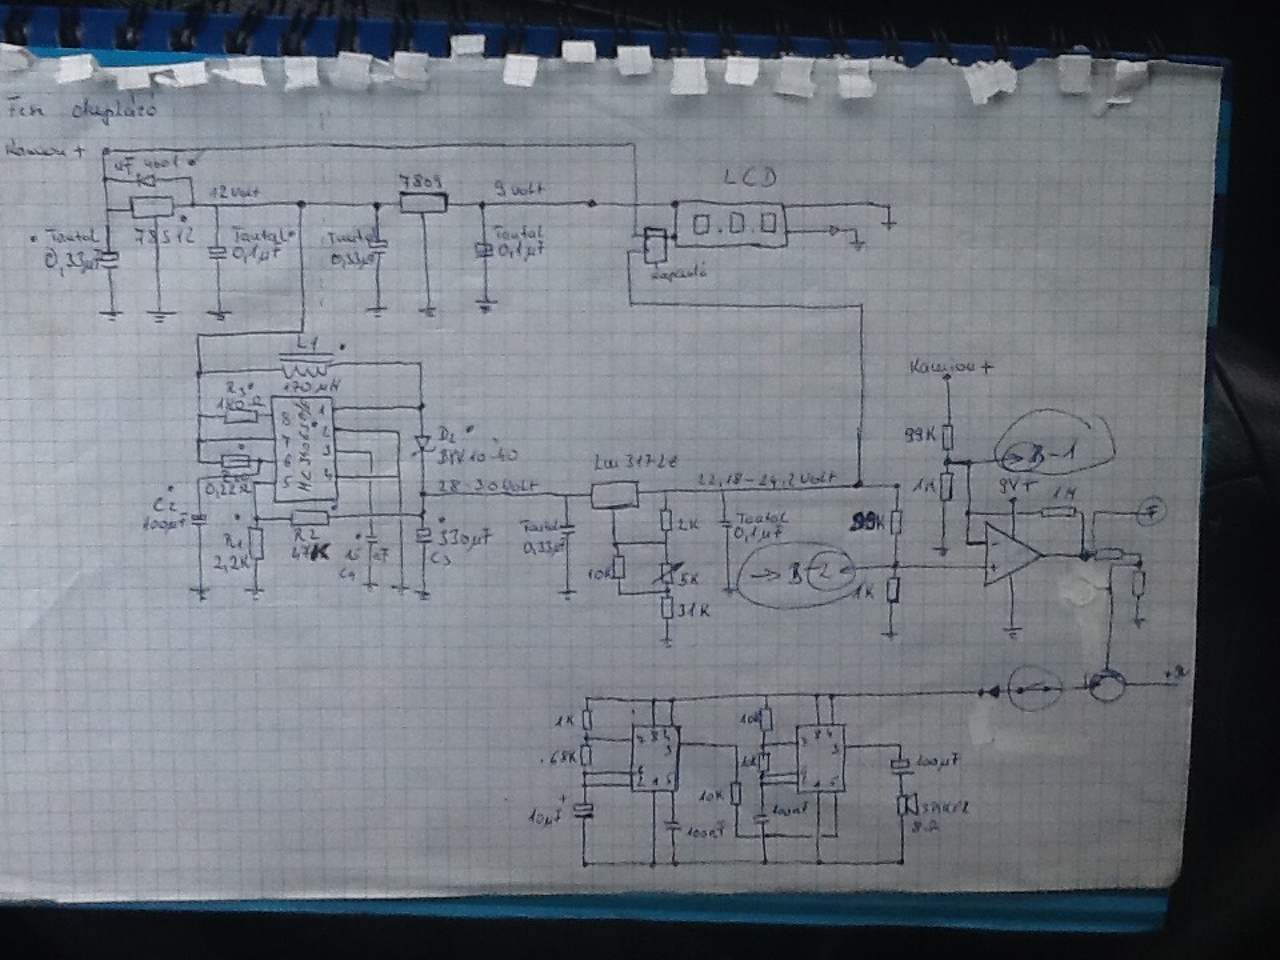 Kamion +
UF 4001
12 Volt
7809
9 Volt
LCD
0.0.0
Tantal
0,33µF
78S12
Tantal
0,1µF
Tantal
0,33µF
Tantal
0,1µF
Kapcsoló
L1
170µH
R3
180Ω
8
7
6
5
1
2
3
4
MC34063
0,22Ω
D2
28-30 Volt
Lm317LZ
22,18-24,2 Volt
C2
100µF
R1
2,2K
R2
47K
C4
330µF
C3
Tantal
0,33µF
2K
10K
5K
31K
Tantal
0,1µF
99K
→ B-2
1K
Kamion +
99K
B-1
1K
9V+
1M
-
+
F
1K
68K
10µF
+
7
8
4
3
1
5
100nF
10K
10K
100nF
8
4
3
1
5
100µF
8Ω